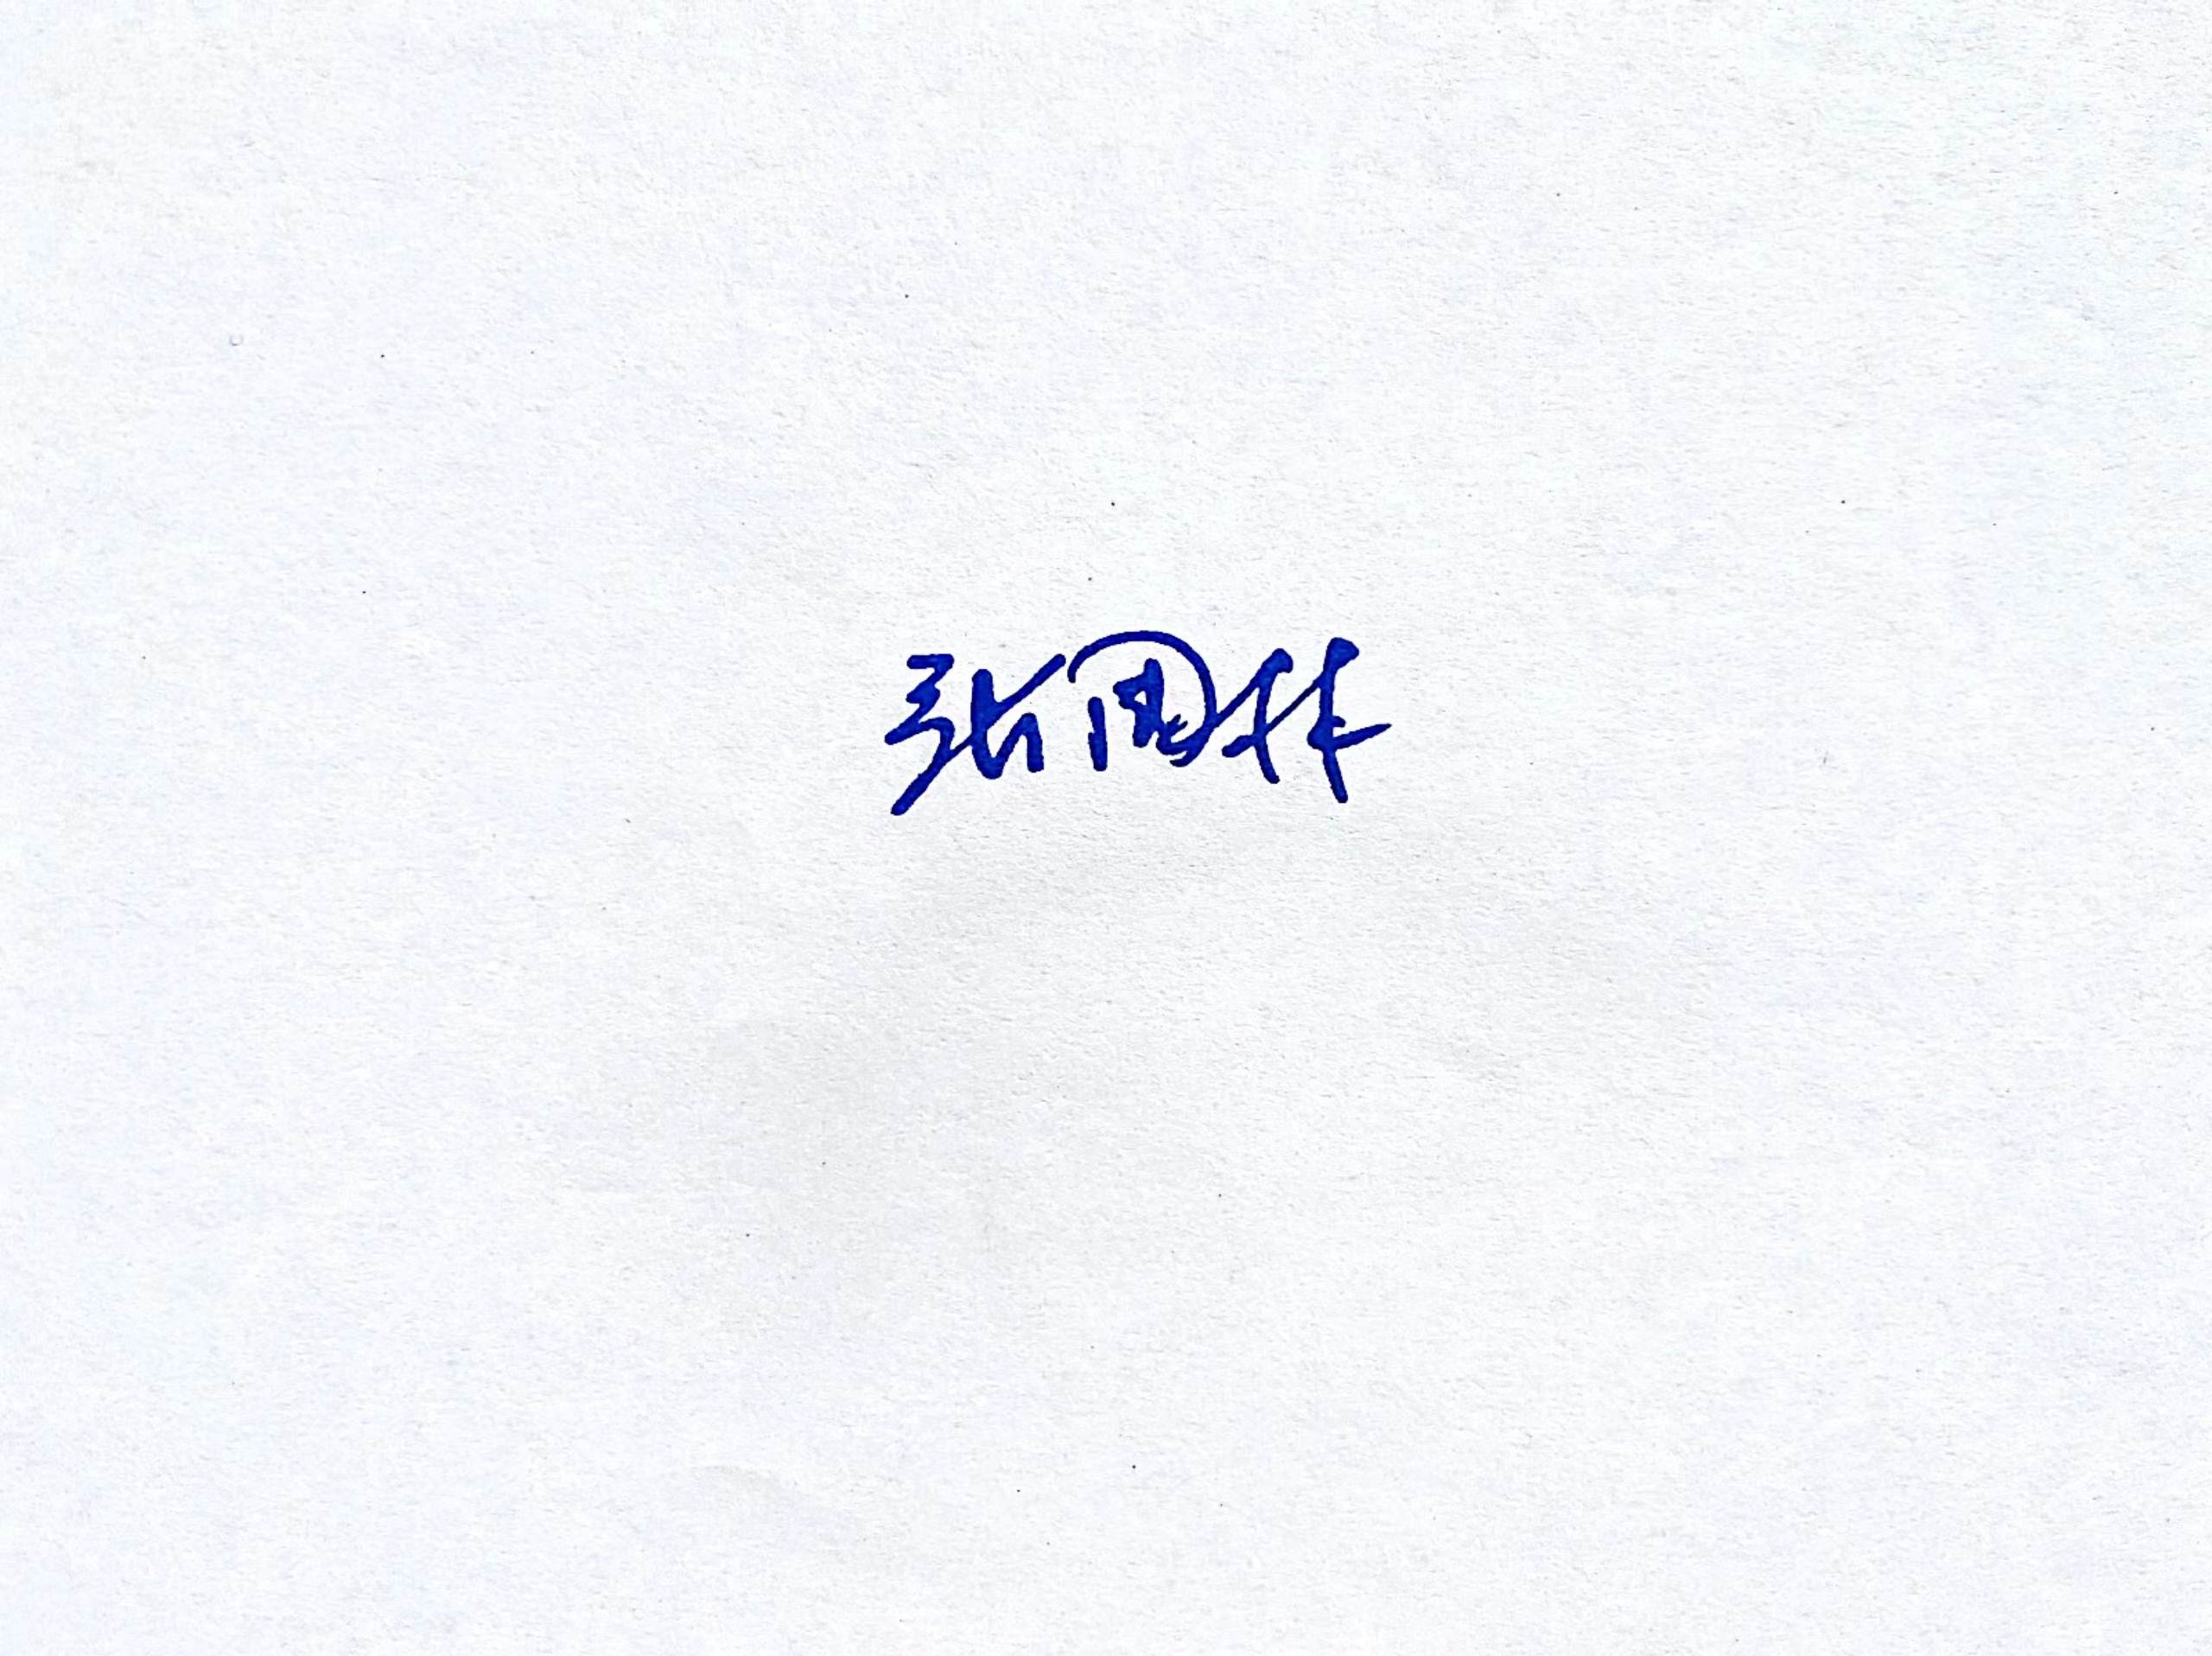 张国林